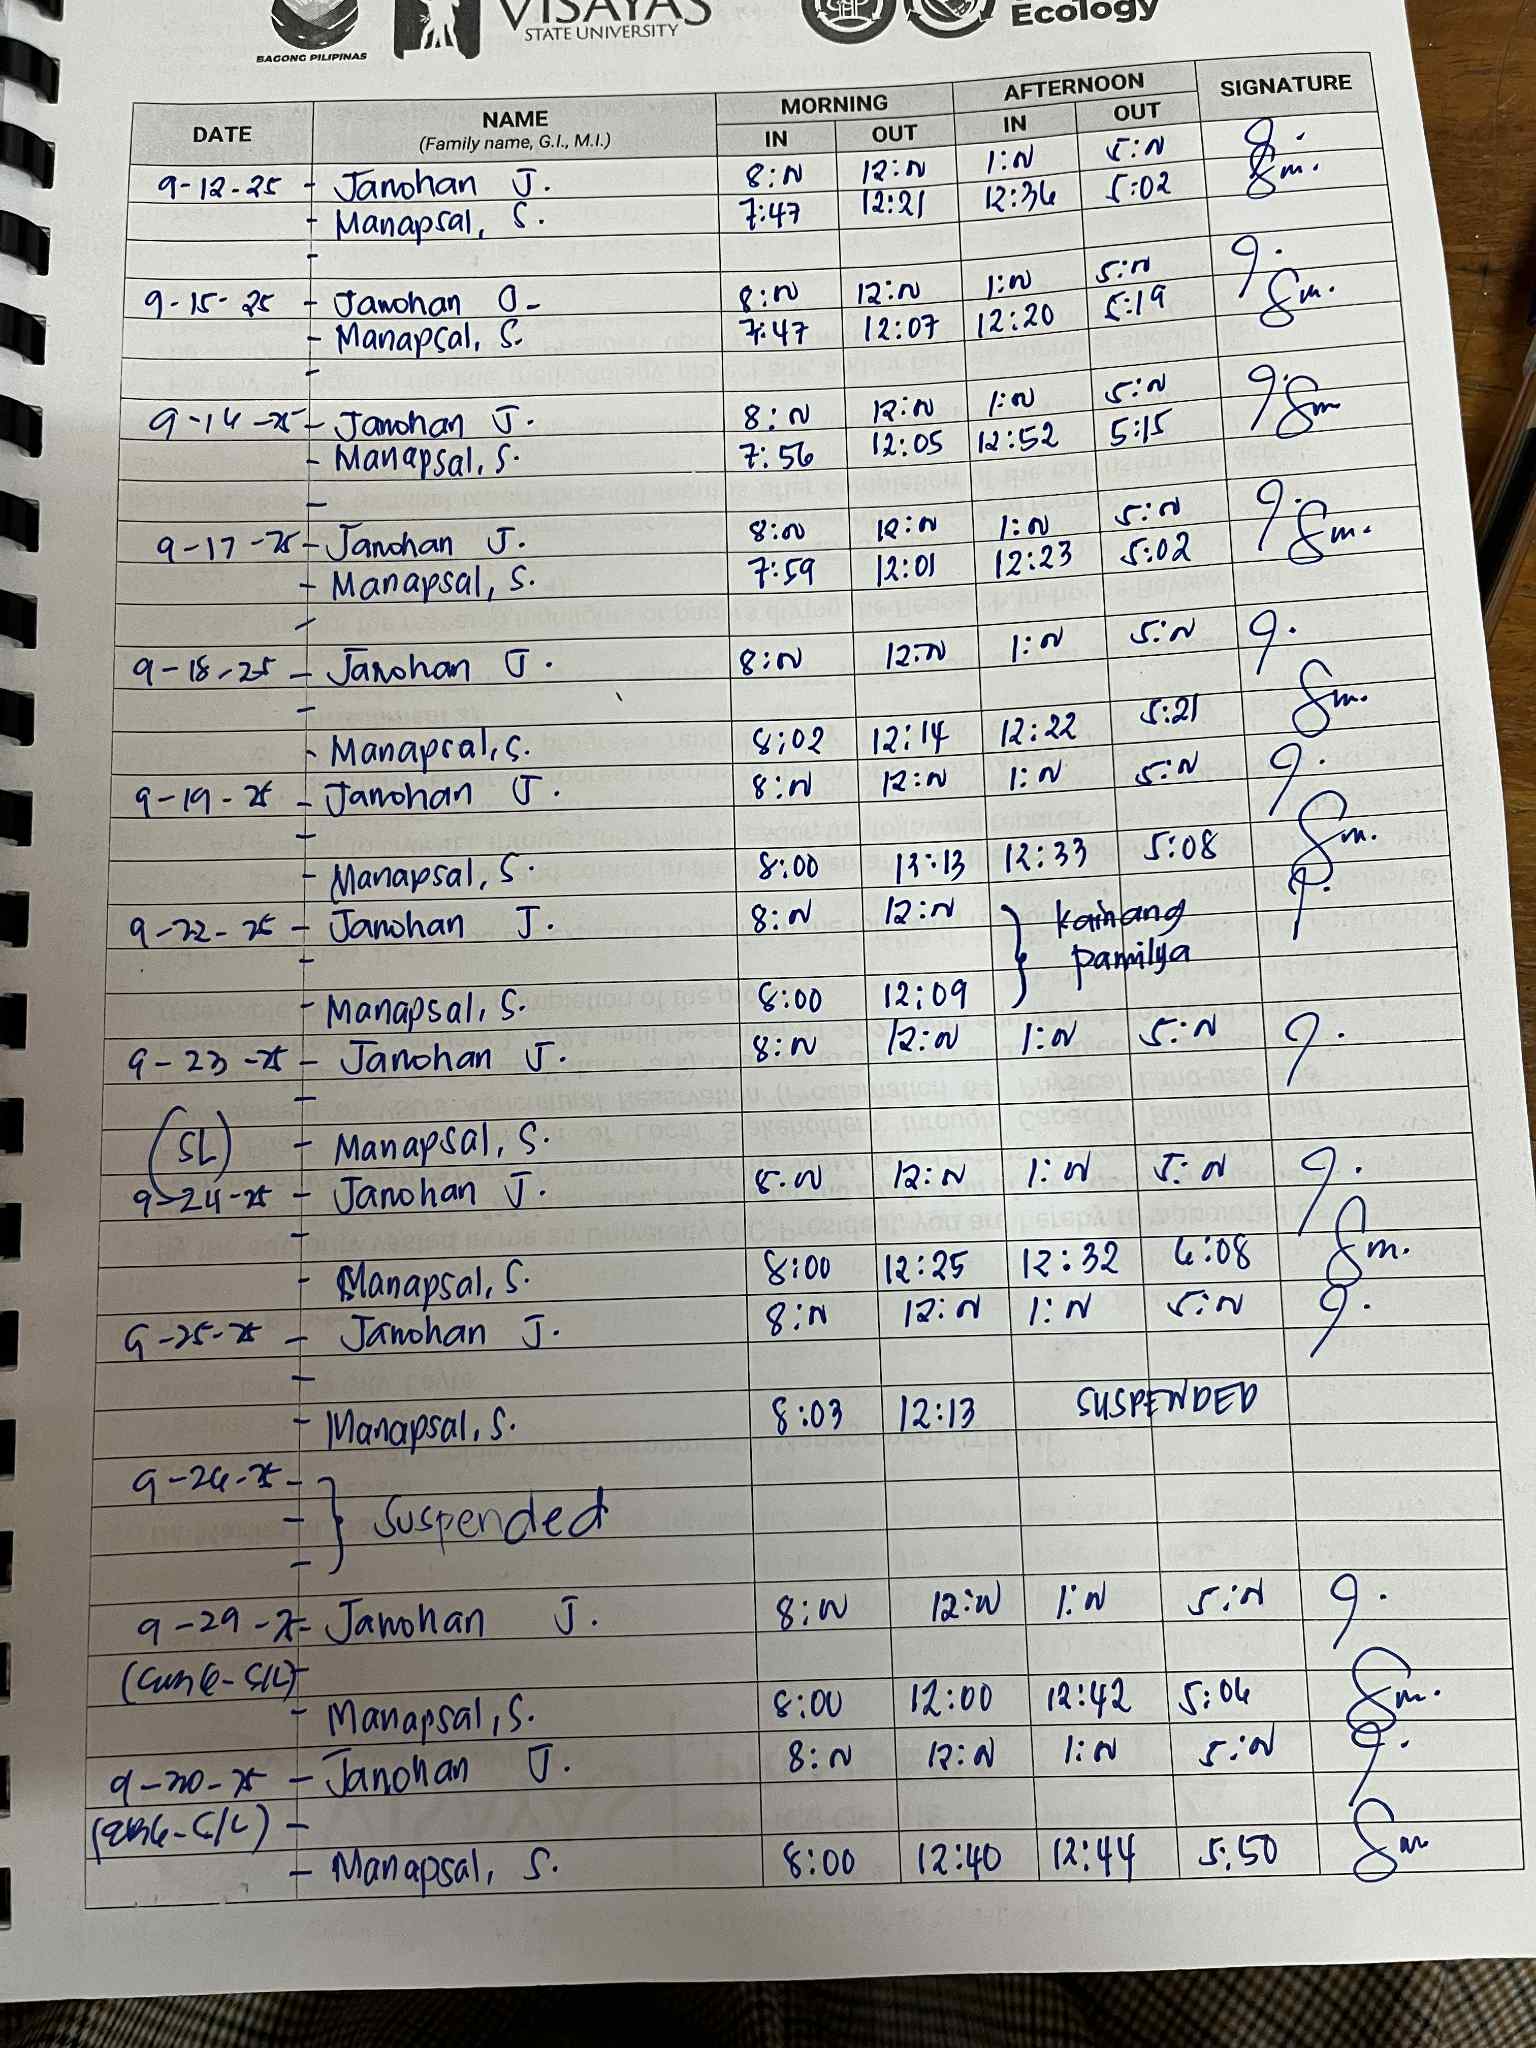 BAGONG PILIPINAS
VISAYAS
STATE UNIVERSITY
Ecology
DATE NAME (Family name, G.I., M.I.) MORNING IN OUT AFTERNOON IN OUT SIGNATURE
9-12-25 - Janohan J. 8:N 12:N 1:N 5:N
- Manapsal, S. 7:47 12:21 12:36 5:02 Sm.
-
9-15-25 - Janohan J- 8:N 12:N 1:N 5:N
- Manapsal, S. 7:47 12:07 12:20 5:19 Sm.
-
9-16-25 - Janohan J. 8:N 12:N 1:N 5:N
- Manapsal, S. 7:56 12:05 12:52 5:15 Sm
-
9-17-25 - Janohan J. 8:N 12:N 1:N 5:N
- Manapsal, S. 7:59 12:01 12:23 5:02 Sm.
-
9-18-25 - Janohan J. 8:N 12:N 1:N 5:N
-
- Manapsal, S. 8:02 12:14 12:22 5:21 Sm.
9-19-25 - Janohan J. 8:N 12:N 1:N 5:N
-
- Manapsal, S. 8:00 12:33 5:08 Sm.
9-22-25 - Janohan J. 8:N 12:N } kainang
- pamilya
- Manapsal, S. 8:00 12:09
9-23-25 - Janohan J. 8:N 12:N 1:N 5:N
-
(SL) - Manapsal, S.
9-24-25 - Janohan J. 8:N 12:N 1:N 5:N
-
- Manapsal, S. 8:00 12:25 12:32 6:08 Sm.
9-25-25 - Janohan J. 8:N 12:N 1:N 5:N
-
- Manapsal, S. 8:03 12:13 SUSPENDED
9-26-25 -
- } Suspended
-
9-29-25 - Janohan J. 8:N 12:N 1:N 5:N
-
- Manapsal, S. 8:00 12:00 12:42 5:06 Sm.
9-30-25 - Janohan J. 8:N 12:N 1:N 5:N
-
- Manapsal, S. 8:00 12:40 12:44 5:50 Sm